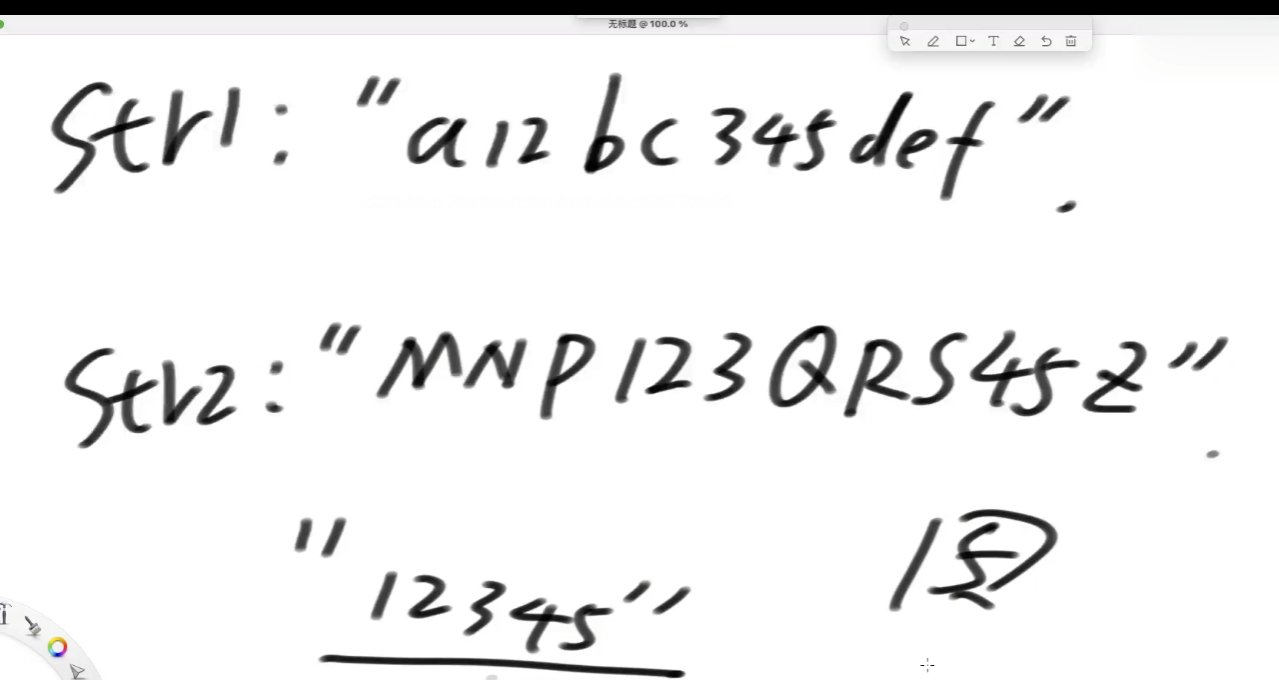 无标题 @ 100.0 %
Str1: "a12bc345def".
Str2: "MNP123QRS45Z".
"12345"